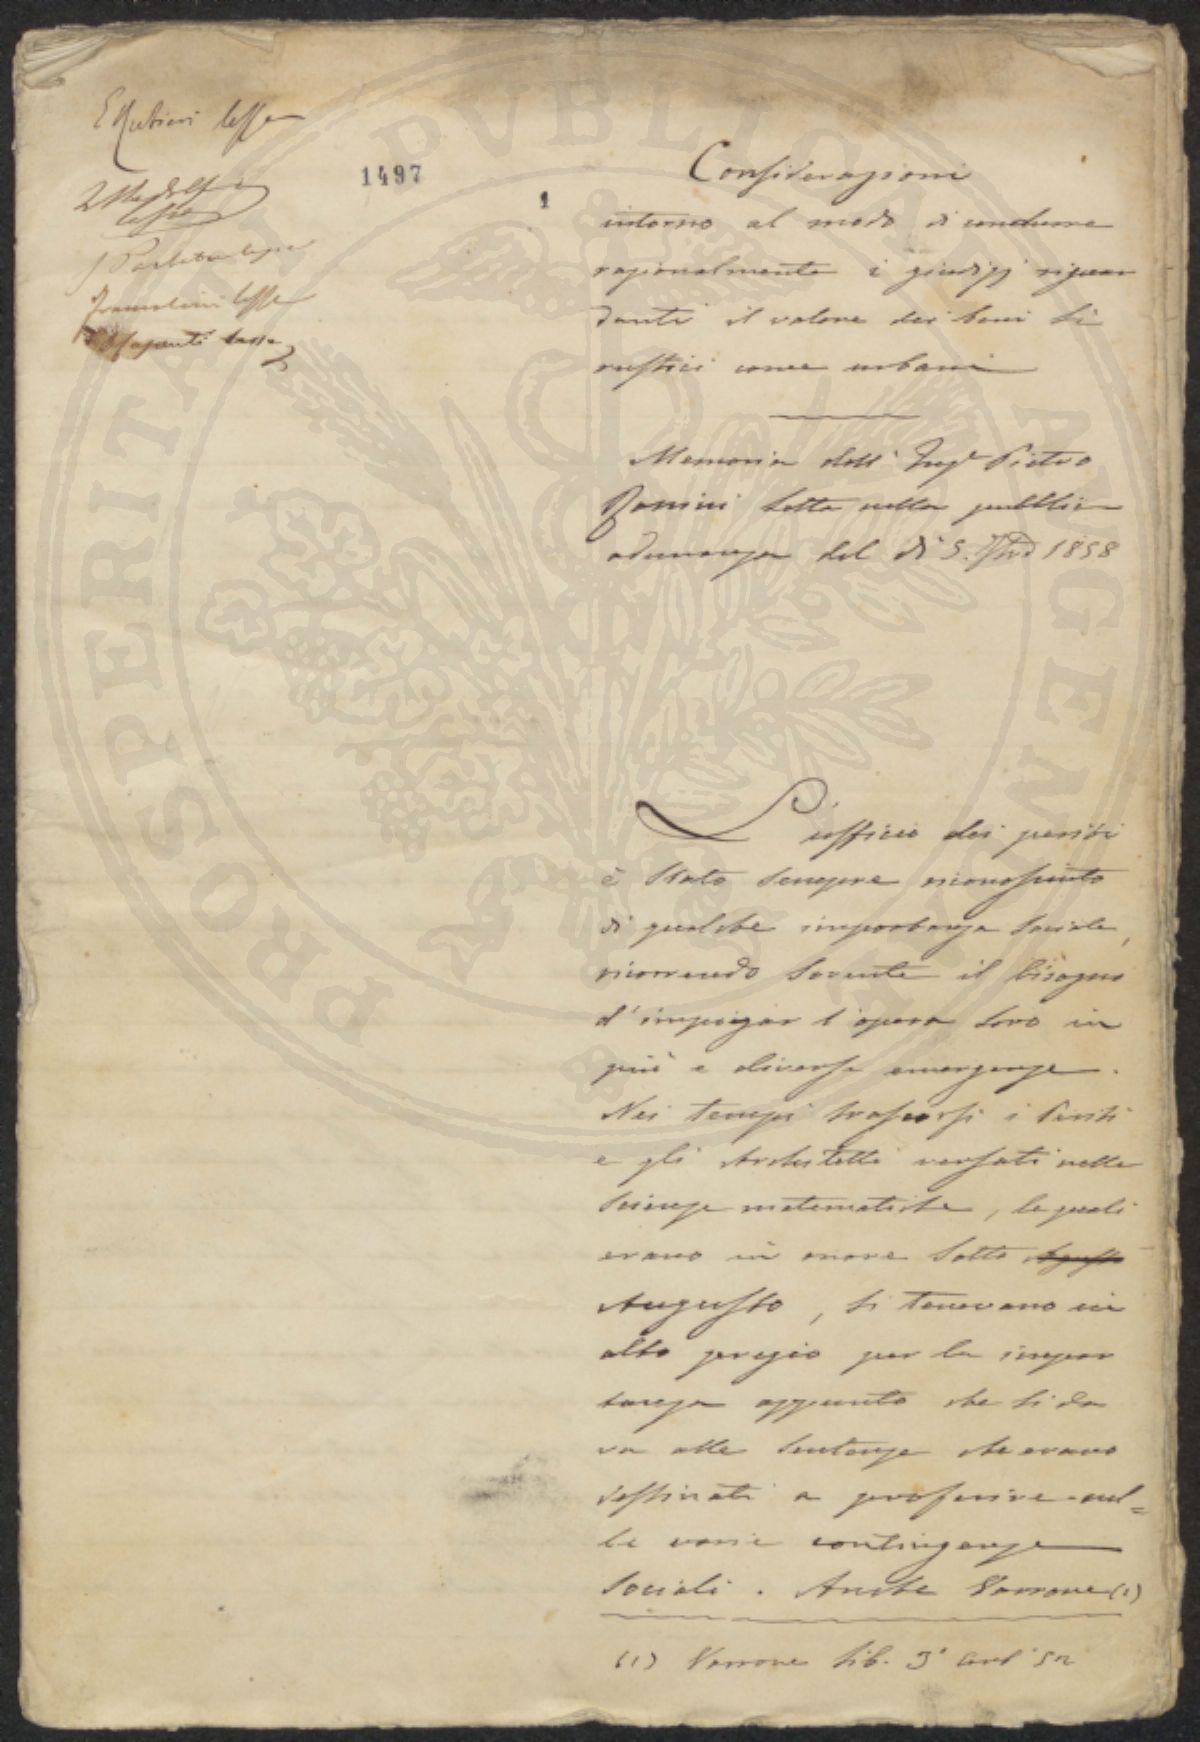 E Rubieri lesse
lesse
lesse
Franceschini lesse
lesse
1497
1
Considerazioni
intorno al modo di condurre
razionalmente i giudizj riguar
danti il valore dei beni sì
rustici come urbani
Memoria dell' Ingr Pietro
Bonini letta nella pubblica
adunanza del dì 5. 1858
L'ufficio dei periti
è stato sempre riconosciuto
di qualche importanza sociale,
ricorrendo sovente il bisogno
d'impiegar l'opera loro in
più e diverse emergenze.
Nei tempi trascorsi i Periti
e gli Architetti versati nelle
scienze matematiche, le quali
erano in onore sotto
Augusto, si tenevano in
alto pregio per la impor
tanza appunto che si da
va alle sentenze che erano
destinati a proferire nel=
le varie contingenze
sociali. Anche Varrone (1)
(1) Varrone lib. 3°
PROSPERITATI PUBLICAE AUGENDAE